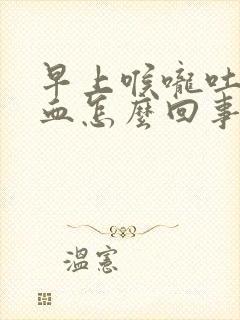 早上喉嚨吐
血怎麼回事
溫憲